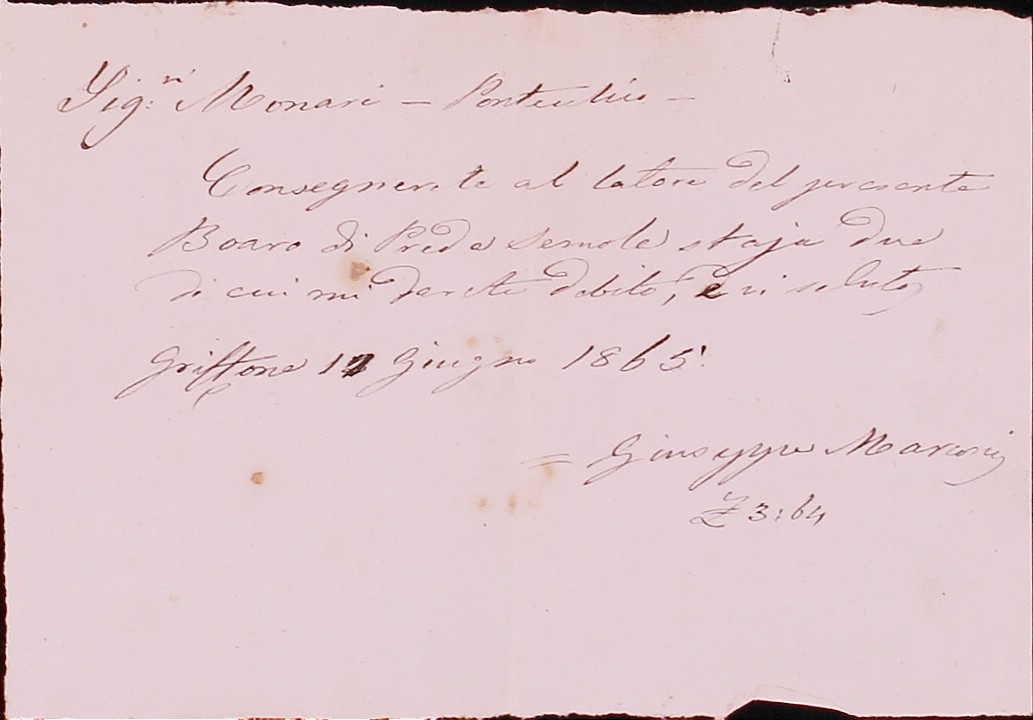 Sig.ri Monari - Pontecchio -
Consegnerete al latore del presente
Boaro di Preda Semole staja due
di cui mi darete debito, e vi saluto
Griffone 12 Giugno 1865.
= Giuseppe Marconi
£ 3:64